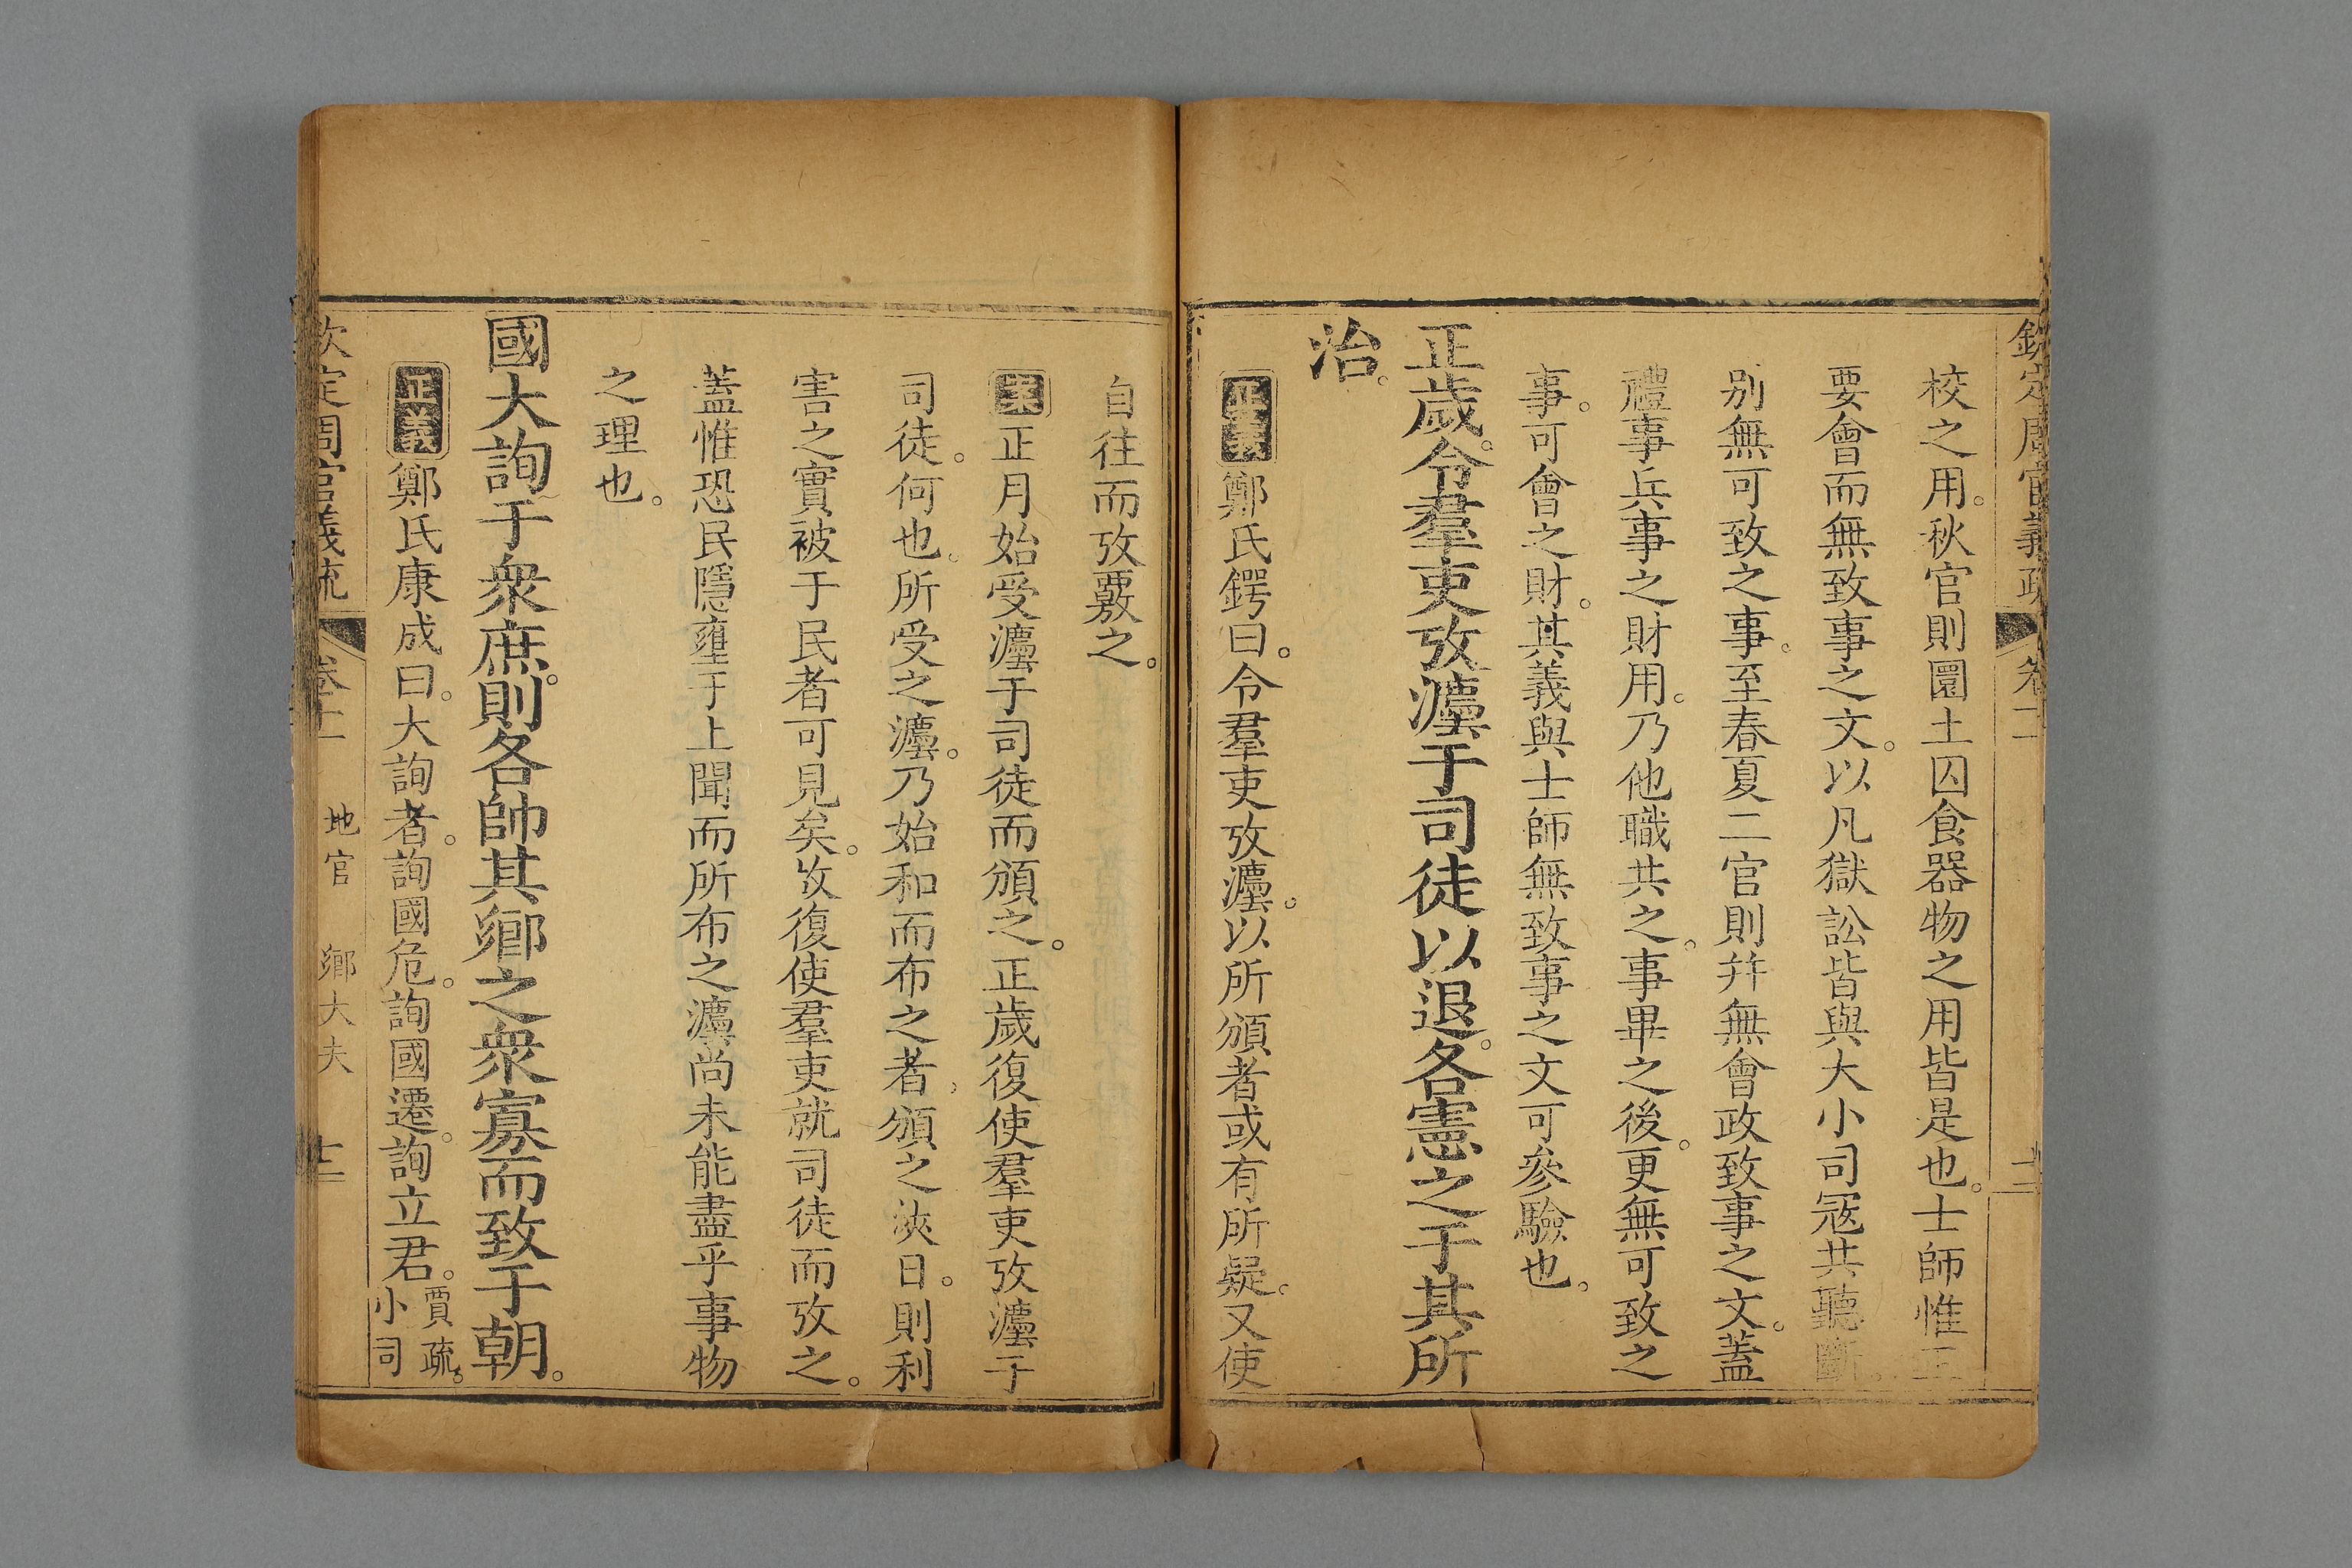 欽定周官義疏 卷十一 十二
校之用。秋官則圜土囚食器物之用皆是也。士師惟正
要會而無致事之文。以凡獄訟皆與大小司寇共聽斷。
別無可致之事。至春夏二官則幷無會政致事之文。蓋
禮事兵事之財用。乃他職共之。事畢之後。更無可致之
事。可會之財。其義與士師無致事之文可參驗也。
正歲。令羣吏攷灋于司徒以退。各憲之于其所
治。
正義鄭氏鍔曰。令羣吏攷灋。以所頒者或有所疑。又使
自往而攷覈之。
案正月始受灋于司徒而頒之。正歲復使羣吏攷灋于
司徒。何也。所受之灋。乃始和而布之者。頒之浹日。則利
害之實被于民者可見矣。故復使羣吏就司徒而攷之。
蓋惟恐民隱壅于上聞而所布之灋尚未能盡乎事物
之理也。
國大詢于衆庶。則各帥其鄉之衆寡而致于朝。
正義鄭氏康成曰。大詢者。詢國危。詢國遷。詢立君。賈疏。小司
欽定周官義疏 卷十一 地官 鄉大夫 十二